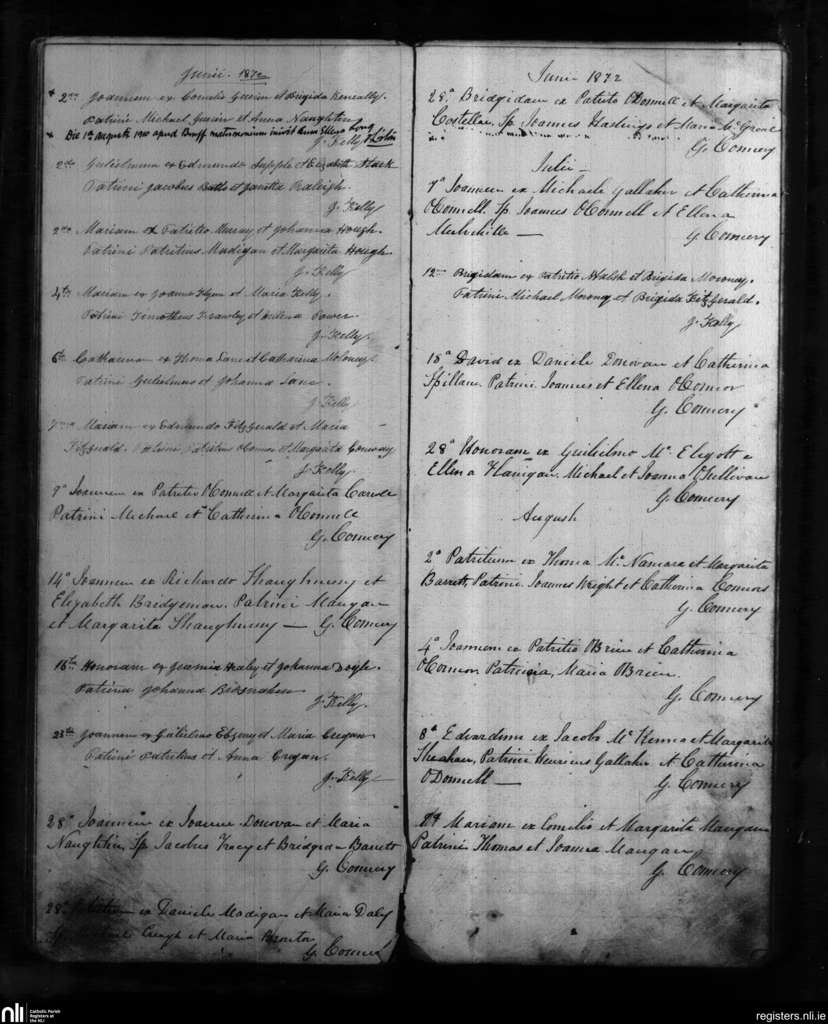 Junii. 1872
+ 2nda Joannem ex Cornelio Guerin et Brigida Keneally.
Patrini Michael Guerin et Anna Naughten
+ Die 1a Augusti 1910 apud Bruff matrimonium inivit cum Ellena Long
J. Kelly
2nda Gulielmum ex Edmundo Supple et Elizabeth Stack
Patrini Jacobus Batts et Raleigh.
J. Kelly
2nda Mariam ex Patritio Murray et Johanna Hough.
Patrini Patritius Madigan et Margarita Hough
J. Kelly
4ta Mariam ex Joanne Flynn et Maria Kelly.
Patrini Timotheus Frawley et Helena Power.
J. Kelly.
6ta Catharinam ex Thoma Lane et Catharina Moloney.
Patrini Gulielmus et Johanna Lane.
J. Kelly
Mariam ex Edmundo FitzGerald et Maria
FitzGerald. Patrini Patritius OConnor et Margarita Conway
J. Kelly
9a Joannem ex Patritio OConnell et Margarita
Patrini Michael et Catherina OConnell
G. Connery
14a Joannem ex Richardo Shaughnessy et
Elizabeth Bridgeman. Patrini Mangan
et Margarita Shaughnessy — G. Connery
16ta Honoram ex Jeremia Healy et Johanna Doyle.
Patrina Johanna Brosnahan
J. Kelly.
Joannem ex Gulielmo et Maria Cregan
Patrini Patritius et Anna Cregan.
J. Kelly
28a Joannem ex Joanne Donovan et Maria
Naughtin, Sp. Jacobus Tracy et Bridgida Barrett
G. Connery
28a ex Daniele Madigan et Maria Daly
Creagh et Maria
G. Connery
Junii 1872
Bridgidam ex Patritio ODonnell et Margarita
Costelloe, Sp. Joannes Hastings et Maria
G. Connery
Julii —
7a Joannem ex Michaele Gallaher et Catherina
OConnell. Sp. Joannes OConnell et Ellena
Mulvihille — G. Connery
12ma Brigidam ex Patritio Walsh et Brigida Moroney.
Patrini Michael Moroney et Brigida FitzGerald.
J. Kelly
18a David ex Daniele Donovan et Catherina
Spillane. Patrini. Joannes et Ellena OConnor
G. Connery
28a Honoram ex Guilielmo Mc Elygott e
Ellena Flanigan. Michael et Joanna OSullivan
G. Connery
August
2a Patritium ex Thoma Mc Namara et Margarita
Barrett, Patrini. Joannes Wright et Catherina Connors
G. Connery
4a Joannem ex Patritio OBrien et Catherina
OConnor, Patrinia, Maria OBrien.
G. Connery
8a Edvardum ex Jacobo Mc Kenna et Margarita
Sheahan, Patrini Henricus Gallaher et Catherina
ODonnell — G. Connery
Mariam ex Cornelio et Margarita Mangan
Patrini Thomas et Joanna Mangan
G. Connery
nli
Catholic Parish
Registers at
the NLI
registers.nli.ie